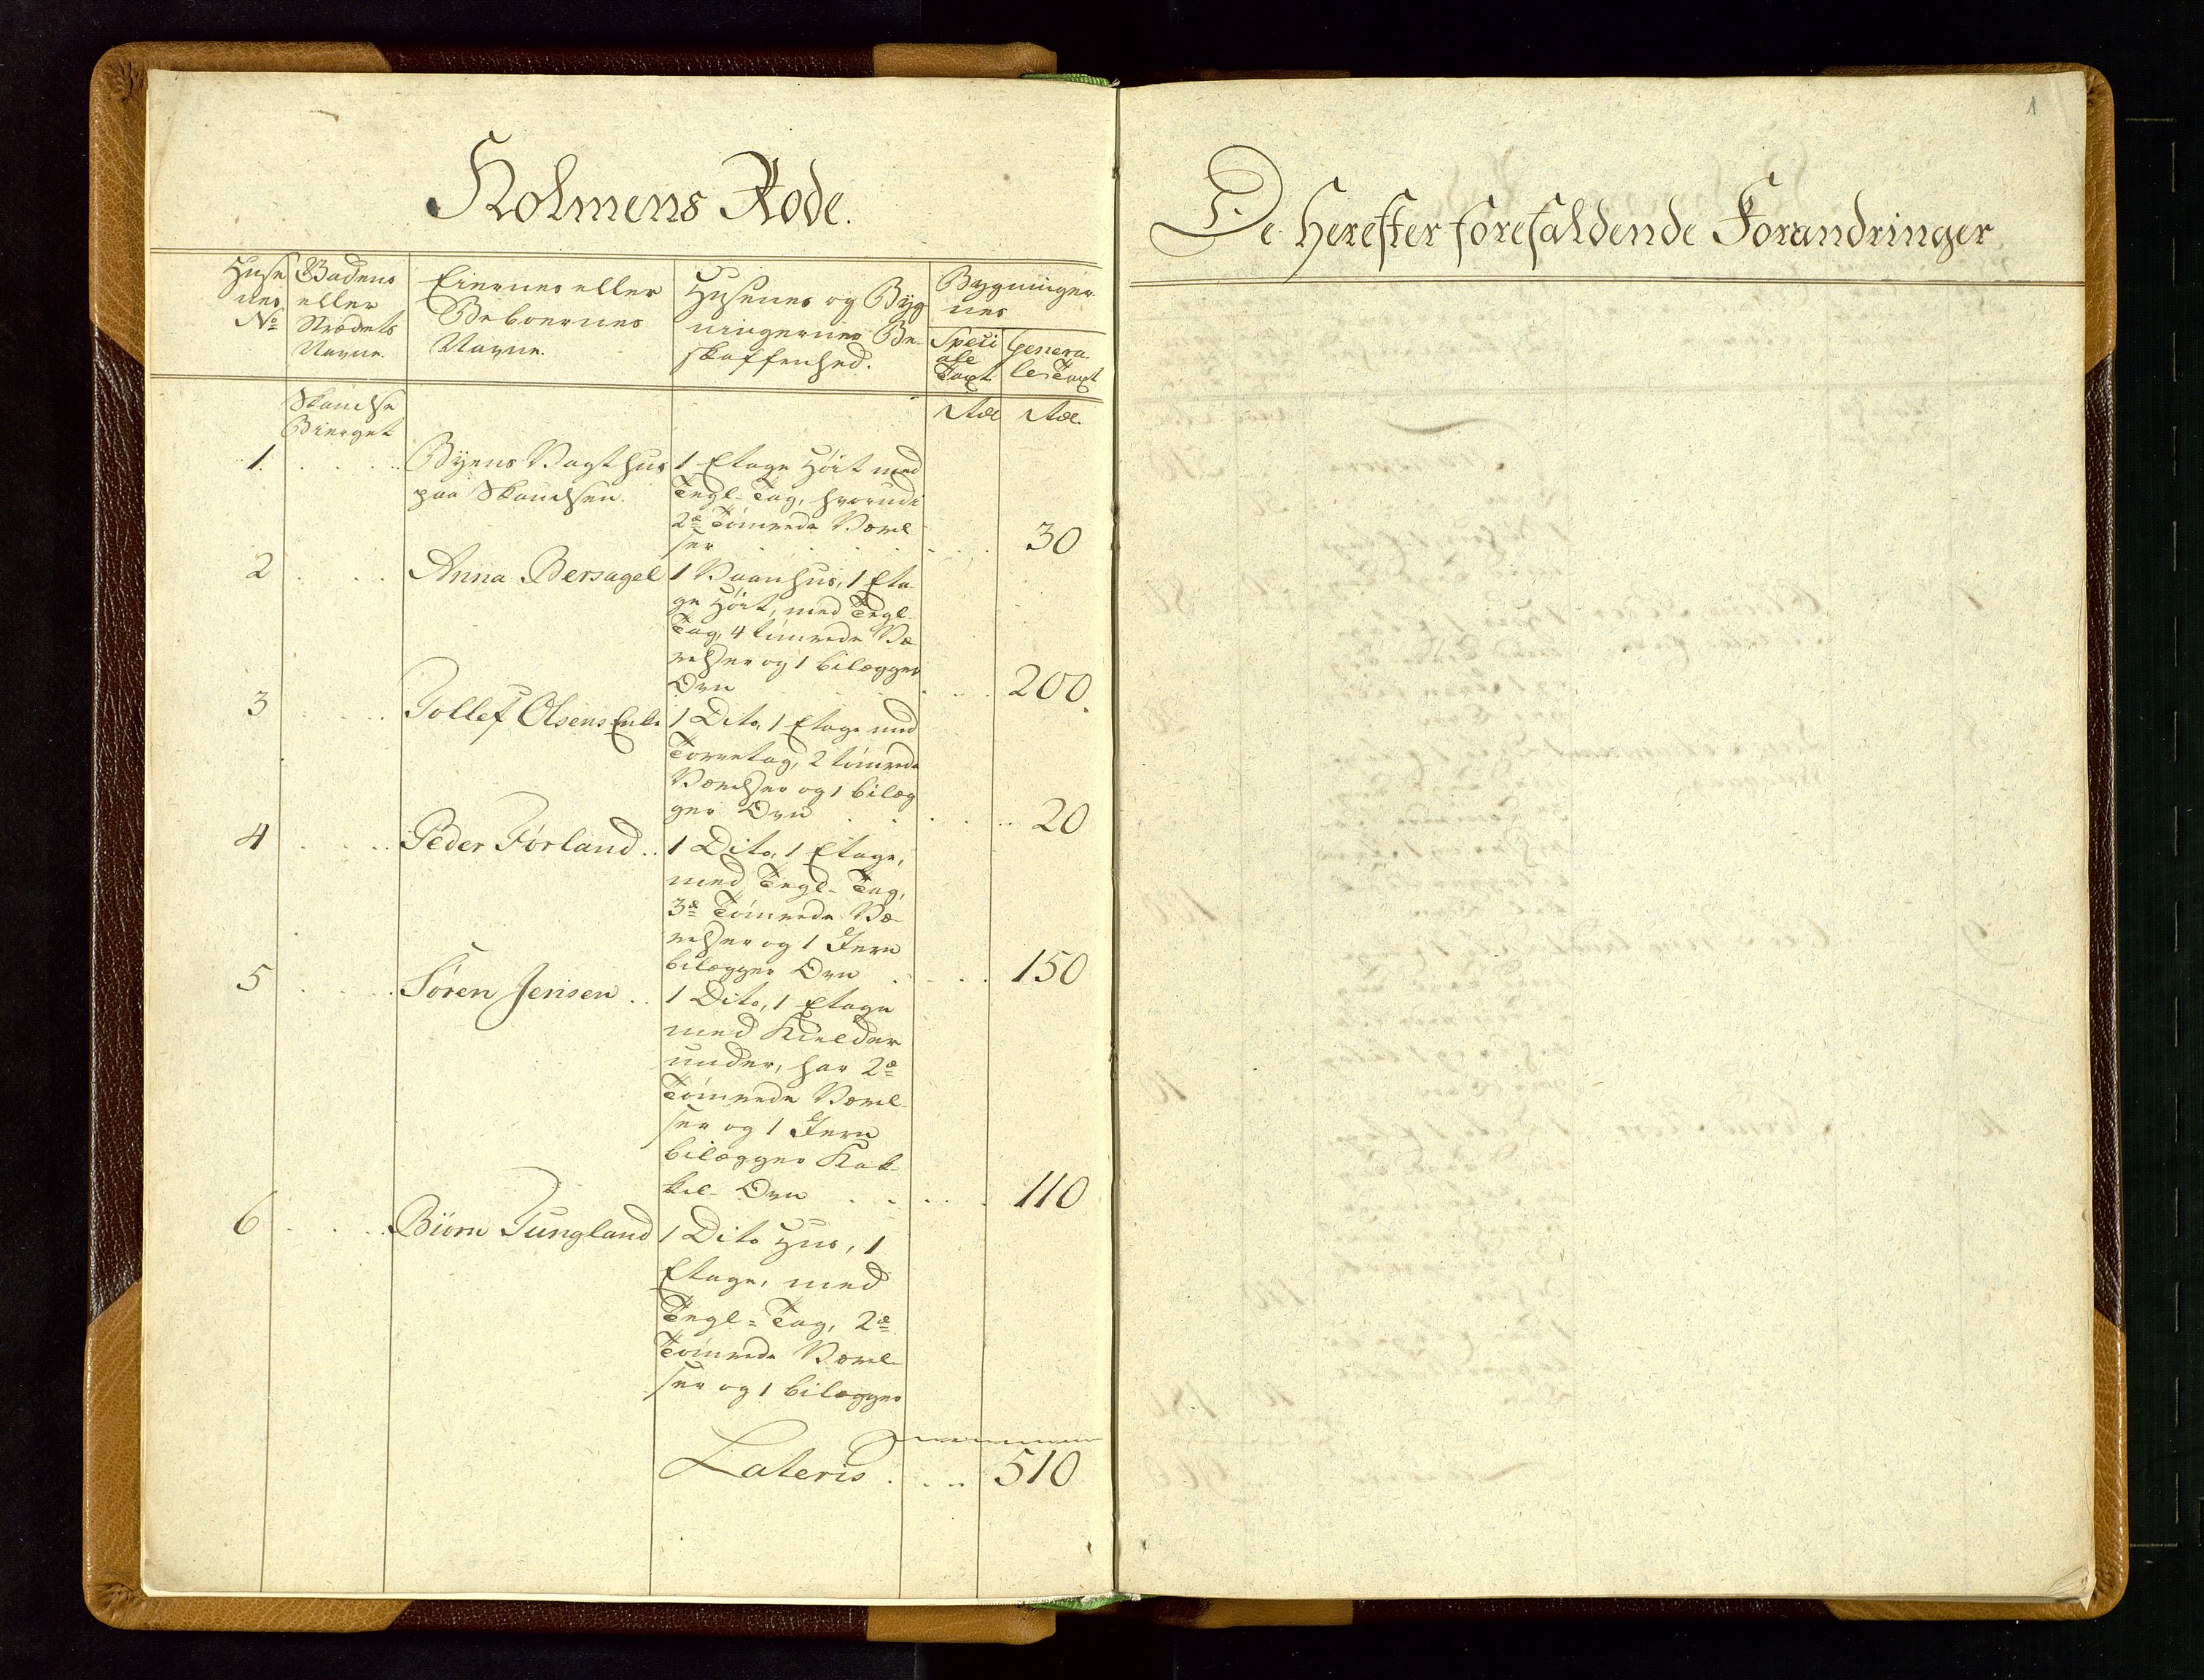 Holmens Rode.
Huse
nes
No
Gadens
eller
Strædets
Navne.
Eiernes eller
Beboernes
Navne.
Husenes og Byg
ningernes Be-
skaffenhed.
Bygninger
nes
Speci
ale
Taxt
Genera-
le Taxt
Skandse
Bierget
Rdl
Rdl.
1. Byens Vagthus
paa Skandsen.
1 Etage Høit med
Tegl-Tag, hvorudi
2de Tømrede Værel
ser 30
2 Anna Bersagel
1 Vaanhus, 1 Eta-
ge Høit, med Tegl-
Tag, 4 tømrede Væ
relser og 1 bilægger
Ovn 200.
3 Tollef Olsens Enke
1 Dito, 1 Etage med
Torvetag, 2 tømrede
Værelser og 1 bilæg
ger Ovn 20
4 Peder Førland
1 Dito, 1 Etage,
med Tegl-Tag,
3de Tømrede Væ-
relser og 1 Jern
bilægger Ovn 150
5 Søren Jensen
1 Dito, 1 Etage
med Kielder
under, har 2de
Tømrede Værel-
ser og 1 Jern
bilægger Kak-
kel-Ovn 110
6 Biørn Tungland
1 Dito Hus, 1
Etage, med
Tegl=Tag, 2de
Tømrede Værel-
ser og 1 bilægger
Lateris 510
1
De Herefter forefaldende Forandringer